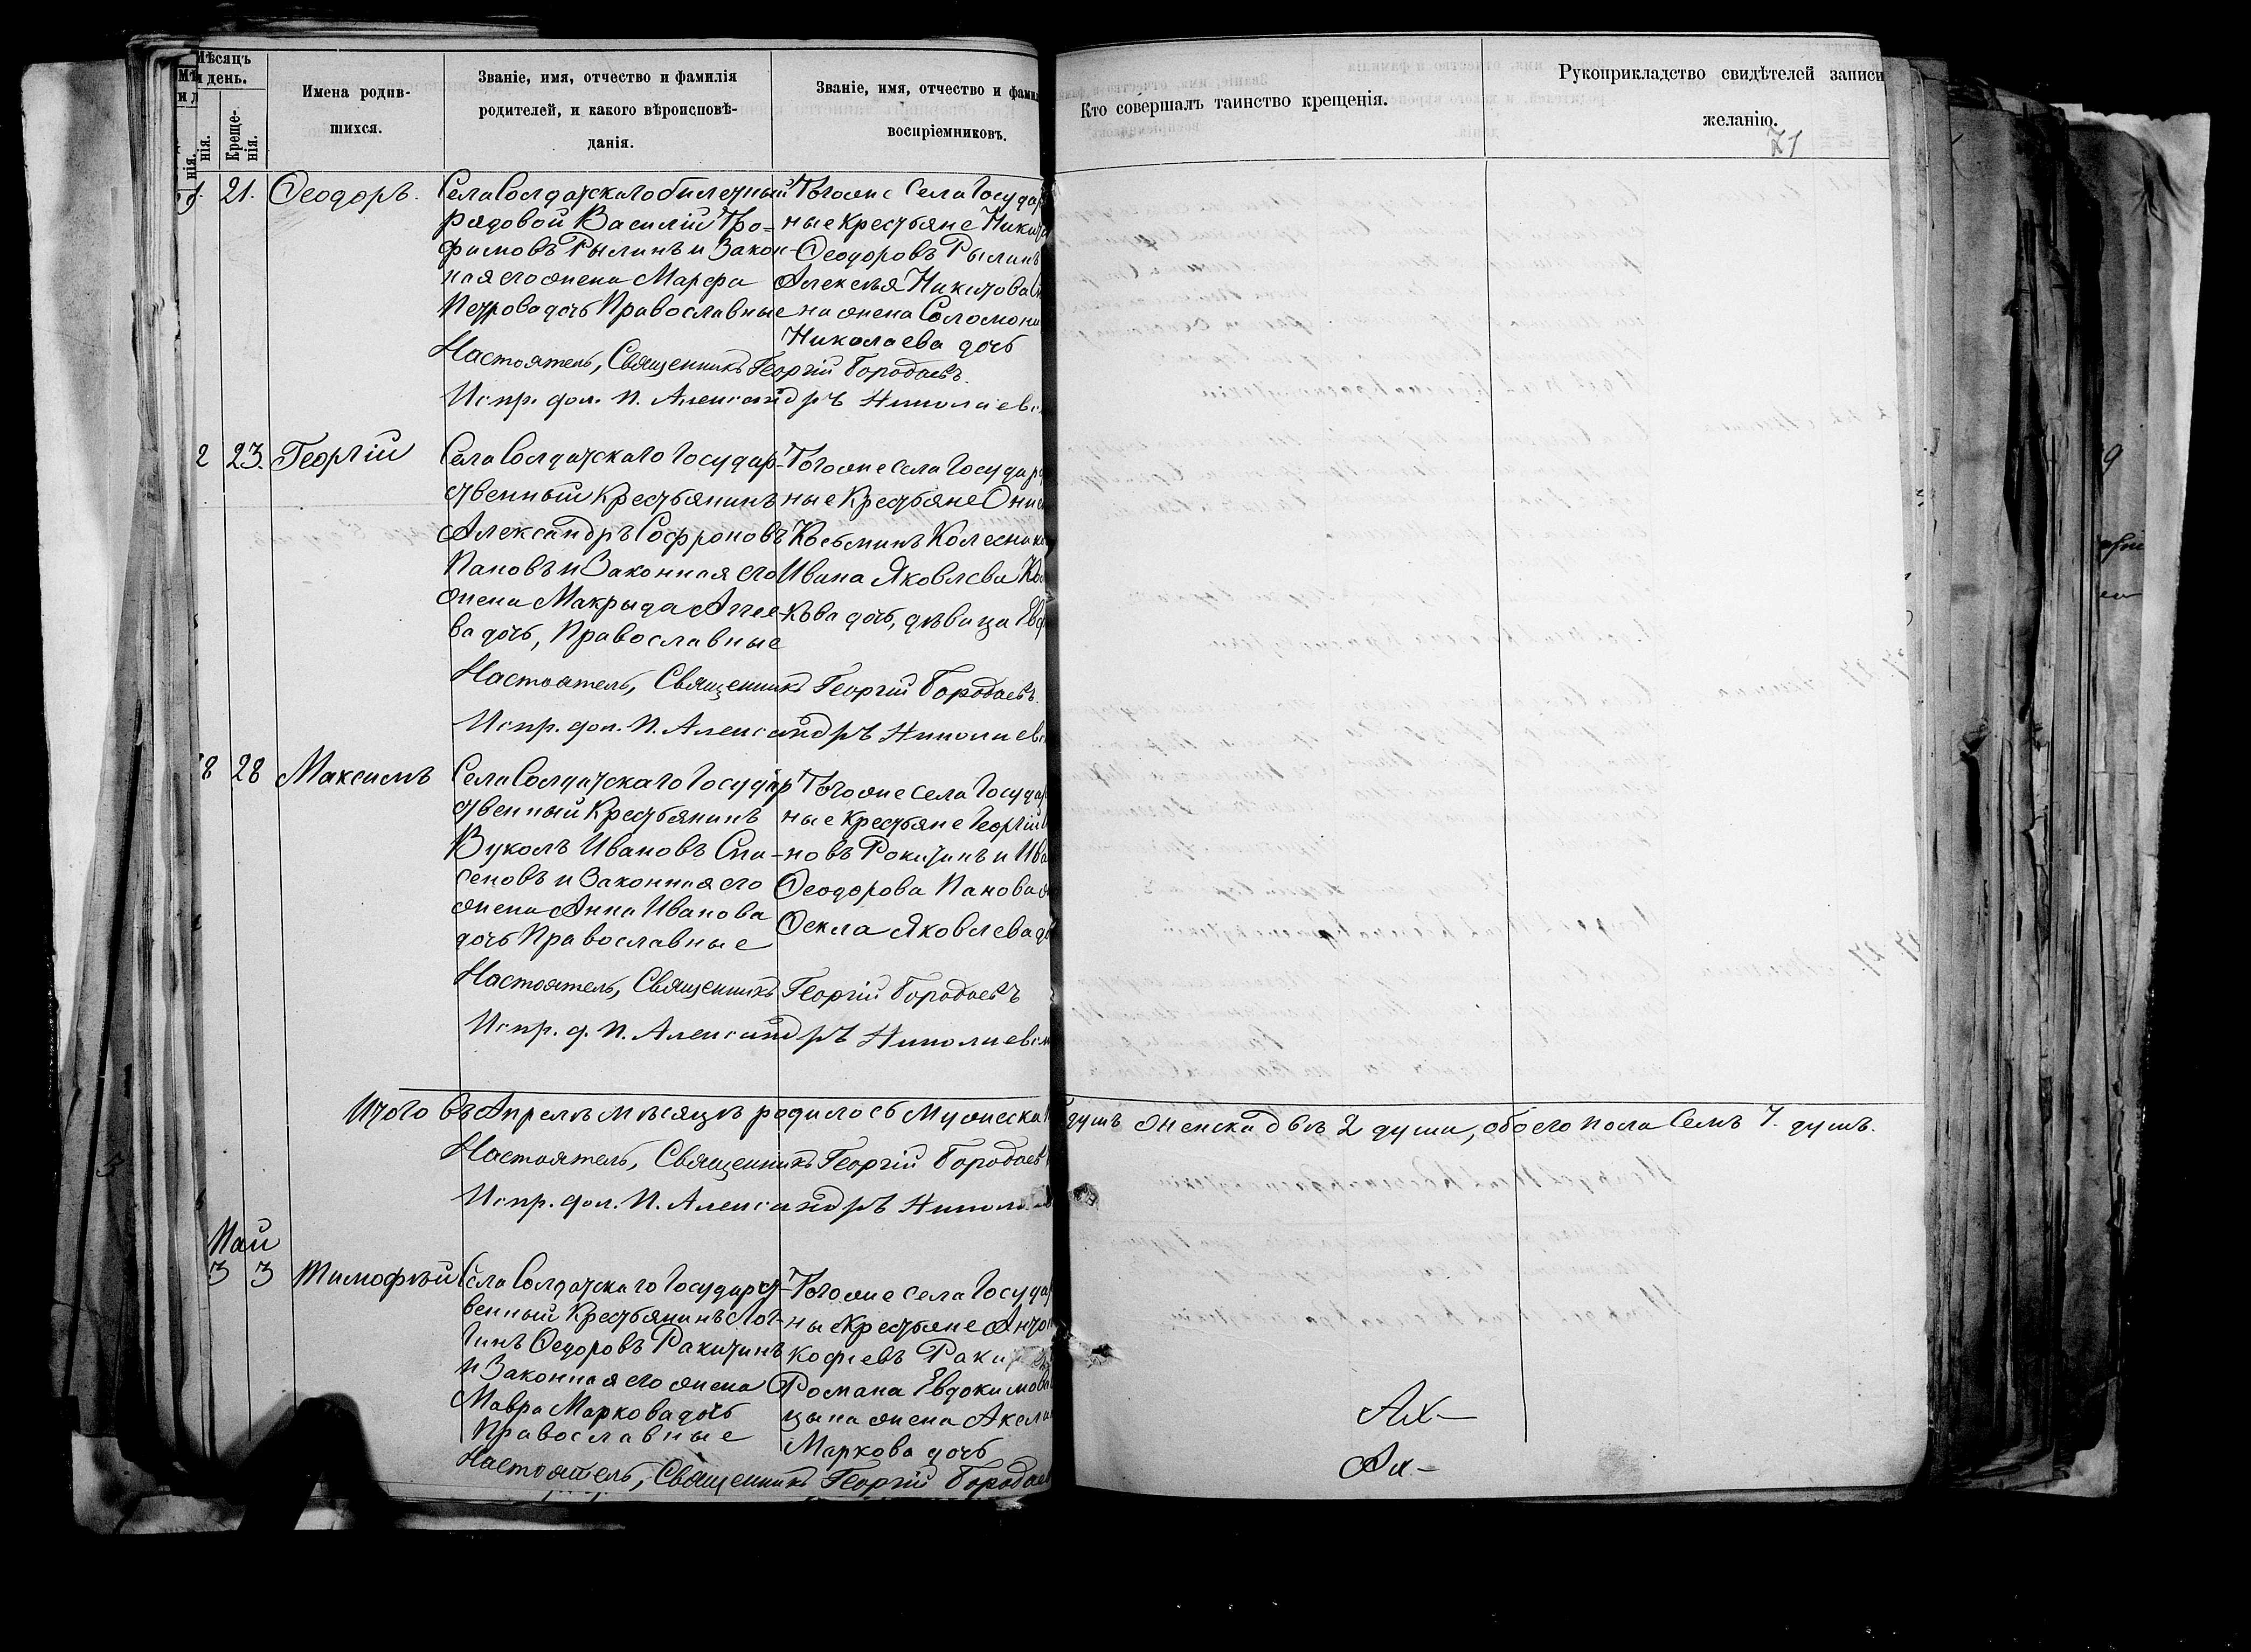 Мѣсяцъ
и день.
Креще-
нія.
нія.
Имена родив-
шихся.
Званіе, имя, отчество и фамилія
родителей, и какого вѣроисповѣ-
данія.
Званіе, имя, отчество и фами
воспріемниковъ.
Кто совершалъ таинство крещенія.
Рукоприкладство свидѣтелей записи
желанію.
71
21. Ѳеодоръ.
Села Солдатскаго билетный
рядовой Василій Тро-
фимовъ Рылинъ и Закон-
ная его жена Марфа
Петрова дочь Православные
Тогоже Села Государ
ные Крестьяне Никита
Ѳеодоровъ Рылинъ
Алексѣя Никитова
на жена Соломони
Николаева дочь
Настоятель, Священникъ Георгій Бородаевъ.
Испр. дол. П. Александръ Николаевс
2 23. Георгій
Села Солдатскаго Государ-
ственный Крестьянинъ
Александръ Софроновъ
Пановъ и Законная его
жена Макрыда Аггее-
ва дочь, Православные
Тогоже села Государ
ные Крестьяне Они
Козьминъ Колесник
Ивана Яковлева
ва дочь, дѣвица Евф
Настоятель, Священникъ Георгій Бородаевъ.
Испр. дол. П. Александръ Николаевс
8 28 Максимъ
Села Солдатскаго Государ
ственный Крестьянинъ
Вуколъ Ивановъ Спа-
сеновъ и Законная его
жена Анна Иванова
дочь Православные
Тогоже села Государ
ные Крестьяне Георгій
новъ Рокитинъ и Ива
Ѳеодорова Панова
Ѳекла Яковлева д
Настоятель, Священникъ Георгій Бородаевъ
Испр. д. П. Александръ Николаевск
Итого въ Апрелѣ мѣсяцѣ родилось Мужеска душъ Женска двѣ 2 души, обоего пола Семъ 7. душъ.
Настоятель, Священникъ Георгій Бородаевъ
Испр. дол. П. Александръ Никол
Май
3 3 Тимофѣй
Села Солдатскаго Государст-
венный Крестьянинъ Лог-
гинъ Ѳедоровъ Ракитинъ
и Законная его жена
Мавра Маркова дочь
Православные
Тогоже села Государ
ные Крестьяне Анто
кофиевъ Раки
Романа Евдокимова
цына жена Аксин
Маркова дочь
Настоятель, Священникъ Георгій Бородаев